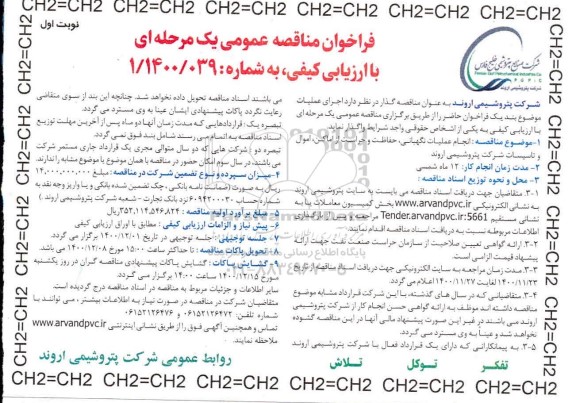 CH2=CH2 CH2=CH2 CH2=CH2 CH2=CH2 CH2=CH2 CH2=CH2
نوبت اول
فراخوان مناقصه عمومی یک مرحله ای
با ارزیابی کیفی، به شماره: ۱/۱۴۰۰/۰۳۹
شرکت صنایع پتروشیمی خلیج فارس
Persian Gulf Petrochemical Industries Co.
PGPIC
شرکت پتروشیمی اروند
شرکت پتروشیمی اروند به عنوان مناقصه گذار در نظر دارد اجرای عملیات
موضوع بند یک فراخوان حاضر را از طریق برگزاری مناقصه عمومی یک مرحله ای
با ارزیابی کیفی به یکی از اشخاص حقوقی واجد شرایط واگذار نماید.
۱-موضوع مناقصه: انجام عملیات نگهبانی، حفاظت و حراست از اماکن، اموال
و تاسیسات شرکت پتروشیمی اروند
۲-مدت زمان انجام کار: ۱۲ ماه شمسی
۳- محل و نحوه توزیع اسناد مناقصه:
۳-۱ متقاضیان جهت دریافت اسناد مناقصه می بایست به سایت پتروشیمی اروند
به نشانی الکترونیکی www.arvandpvc.ir بخش کمیسیون معاملات یا به
نشانی مستقیم Tender.arvandpvc.ir:5661 مراجعه و
اطلاعات مربوطه نسبت به دریافت اسناد مناقصه اقدام نمایند.
۳-۲. ارائه گواهی تعیین صلاحیت از سازمان حراست صنعت نفت جهت ارائه
پیشنهاد قیمت الزامی است.
۳-۳. مدت زمان مراجعه به سایت الکترونیکی جهت دریافت اسناد مناقصه از تاریخ
۱۴۰۰/۱۱/۲۳ لغایت ۱۴۰۰/۱۱/۲۷ اعلام می گردد.
۳-۴ متقاضیانی که در سال های گذشته، با این شرکت قرارداد مشابه موضوع
مناقصه داشته اند موظف به ارائه گواهی حسن انجام کار از شرکت پتروشیمی
اروند می باشند در غیر این صورت پیشنهاد مالی آنها در این مناقصه گشوده
نخواهد شد و عیناً به وی مسترد می گردد.
۳-۵ به پیمانکارانی که دارای یک قرارداد فعال با شرکت پتروشیمی اروند
می باشند اسناد مناقصه تحویل داده نخواهد شد. چنانچه این بند از سوی متقاضی
رعایت نگردد پاکات پیشنهادی ایشان عینا به وی مسترد می گردد.
تبصره یک: قراردادهایی که مدت زمان آنها دو ماه پس از آخرین مهلت توزیع
اسناد مناقصه به اتمام می رسند شامل بند فوق نمی گردد.
تبصره دو: شرکت هایی که دو سال متوالی مجری یک قرارداد جاری مستمر شرکت
می باشند، در سال سوم امکان حضور در مناقصه با همان موضوع یا موضوع مشابه را ندارند.
۴- میزان سپرده و نوع تضمین شرکت در مناقصه: مبلغ ۱۴,۰۰۰,۰۰۰,۰۰۰
ریال به صورت (ضمانت نامه بانکی، چک تضمین شده بانکی و یا واریز وجه نقد به
شماره حساب ۶۰۹۴۲۰۰۰۳۰ نزد بانک تجارت - شعبه شرکت پتروشیمی اروند.)
۵- مبلغ برآورد اولیه مناقصه: ۳۵۲,۱۱۴,۵۴۶,۸۲۴ ریال
۶- پیش نیاز و الزامات ارزیابی کیفی: مطابق با اوراق ارزیابی کیفی
۷- جلسه توجیهی: جلسه توجیهی در تاریخ ۱۴۰۰/۱۲/۰۱ برگزار می گردد.
۸- تحویل پاکات مناقصه: تا حداکثر ساعت ۱۵:۰۰ مورخ ۱۴۰۰/۱۲/۰۸ می باشد.
۹- گشایش پاکات: گشایش پاکات پیشنهادی مناقصه گران در روز یکشنبه
مورخ ۱۴۰۰/۱۲/۱۵ ساعت ۱۴:۰۰ برگزار می گردد
سایر اطلاعات و جزئیات مربوط به مناقصه در اسناد مناقصه درج گردیده است.
متقاضیان شرکت در مناقصه در صورت نیاز به اطلاعات بیشتر، می توانند با
شماره تلفن: ۰۶۱۵۲۱۲۶۴۷۲ و ۰۶۱۵۲۱۲۶۴۷۶
تماس و همچنین آگهی فوق را از طریق نشانی اینترنتی www.arvandpvc.ir
ملاحظه نمایند.
تفکر توکل تلاش
روابط عمومی شرکت پتروشیمی اروند
CH2=CH2 CH2=CH2 CH2=CH2 CH2=CH2 CH2=CH2 CH2=CH2